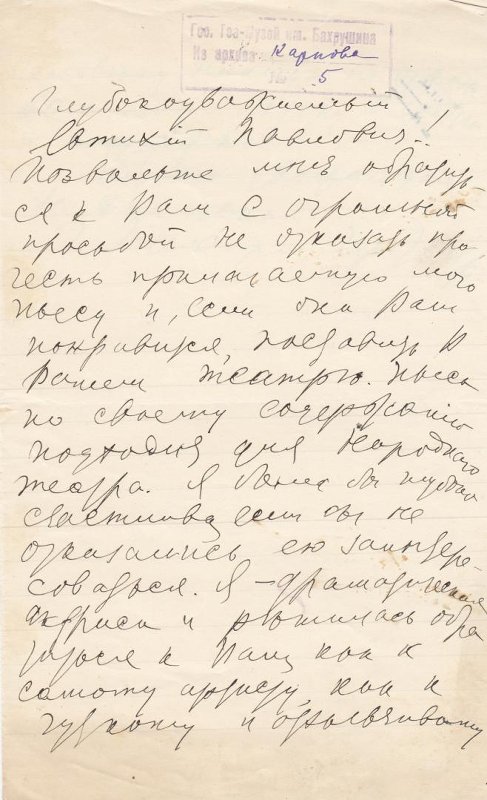 Гос. Теа-Музей им. Бахрушина
Из архива Карпова
№ 5
Глубокоуважаемый
Евтихий Павлович!
Позвольте мне обратить-
ся к Вам с огромной
просьбой не отказать про-
честь прилагаемую мою
пьесу и, если она Вам
понравится, поставить в
Вашем театре. Пьеса
по своему содержанию
подходит для Народного
театра. Я была бы глубоко
счастлива, если бы Вы не
отказались ею заинтере-
соваться. Я – драматическая
актриса и решилась обра-
титься к Вам, как к
самому артисту, как к
чуткому и отзывчивому